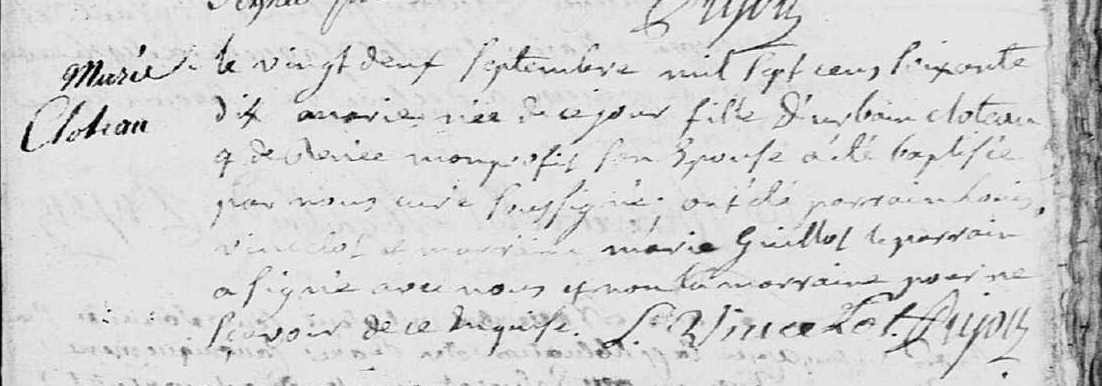 Marie
Cloteau
le vingt deux septembre mil sept cens soixante
dix marie née de ce jour fille d'urbain cloteau
& de Renée monprofit son Epouse a été baptisée
par nous curé soussigné. ont été parrain Louis
vincelot et marraine marie Guillot le parrain
a signé avec nous & non la marraine pour ne
sçavoir de ce enquise. L Vincelot.